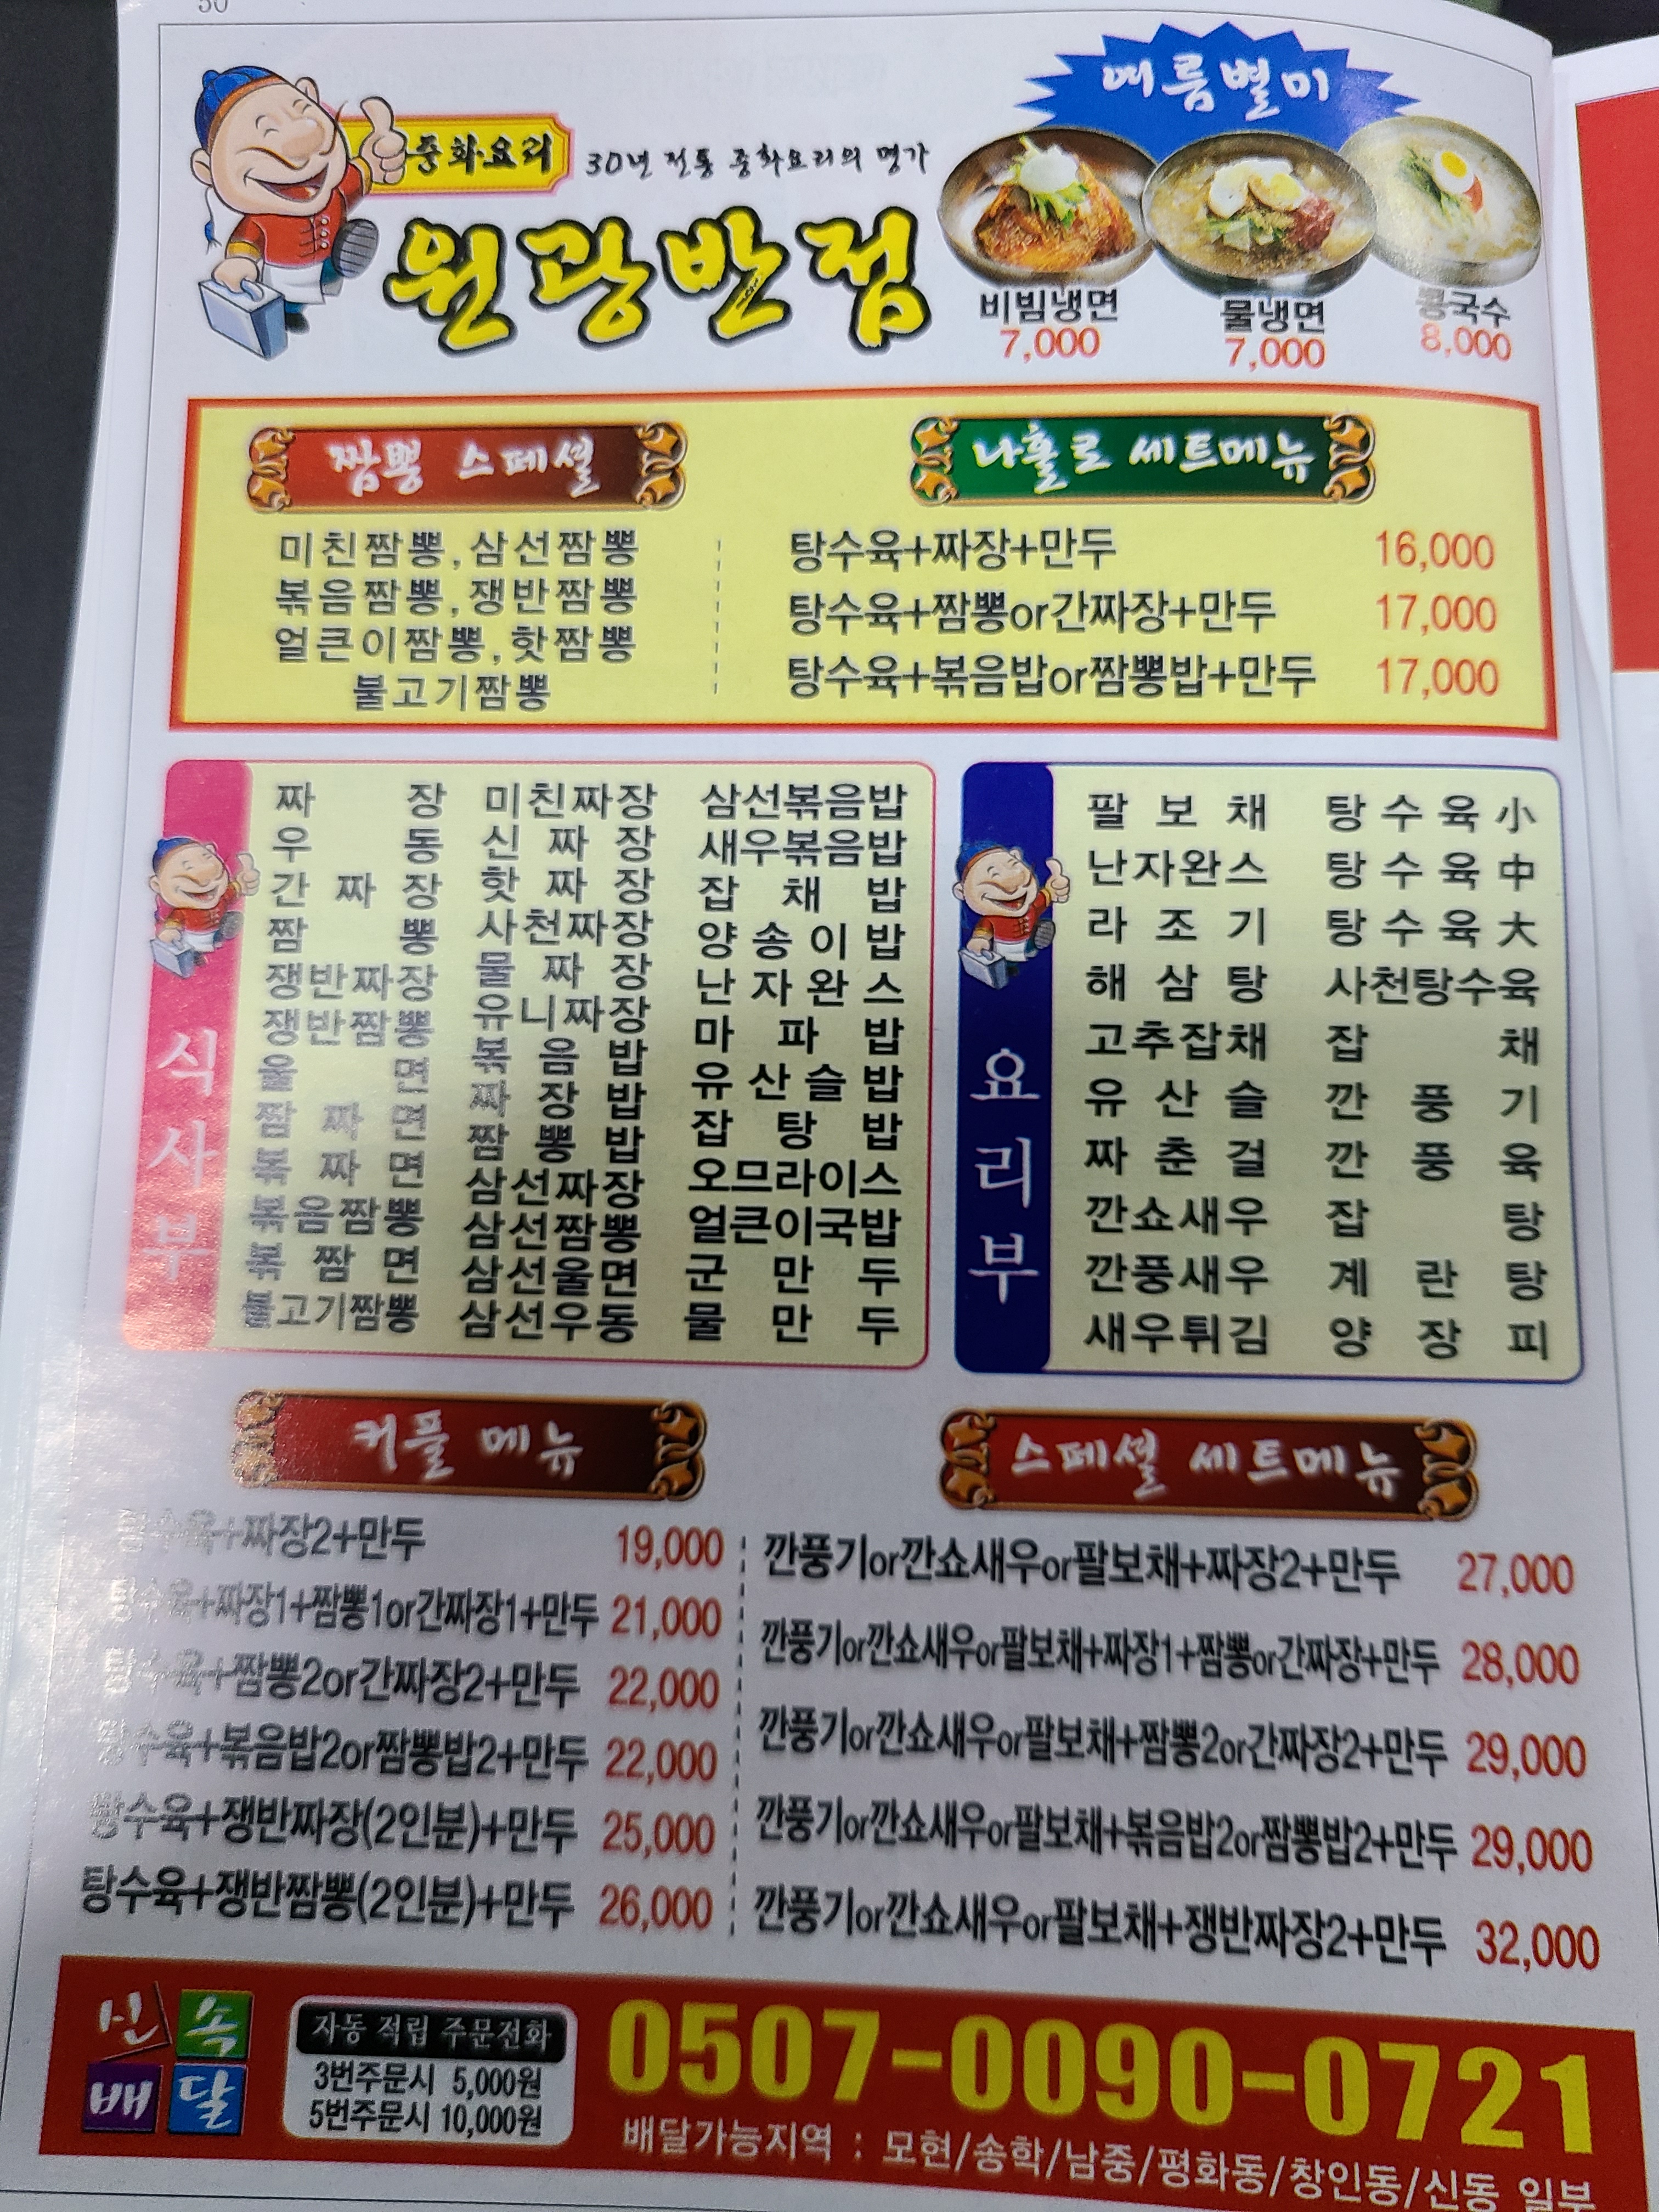 50
여름별미
중화요리
30년 전통 중화요리의 명가
원광반점
비빔냉면
7,000
물냉면
7,000
콩국수
8,000
짬뽕 스페셜
미친짬뽕,삼선짬뽕
볶음짬뽕,쟁반짬뽕
얼큰이짬뽕,핫짬뽕
불고기짬뽕
나홀로 세트메뉴
탕수육+짜장+만두 16,000
탕수육+짬뽕or간짜장+만두 17,000
탕수육+볶음밥or짬뽕밥+만두 17,000
식사부
짜장
우동
간짜장
짬뽕
쟁반짜장
쟁반짬뽕
울면
짬짜면
볶짜면
볶음짬뽕
볶짬면
불고기짬뽕
미친짜장
신짜장
핫짜장
사천짜장
물짜장
유니짜장
볶음밥
짜장밥
짬뽕밥
삼선짜장
삼선짬뽕
삼선울면
삼선우동
삼선볶음밥
새우볶음밥
잡채밥
양송이밥
난자완스
마파밥
유산슬밥
잡탕밥
오므라이스
얼큰이국밥
군만두
물만두
요리부
팔보채
난자완스
라조기
해삼탕
고추잡채
유산슬
짜춘걸
깐쇼새우
깐풍새우
새우튀김
탕수육小
탕수육中
탕수육大
사천탕수육
잡채
깐풍기
깐풍육
잡탕
계란탕
양장피
커플 메뉴
탕수육+짜장2+만두 19,000
탕수육+짜장1+짬뽕1or간짜장1+만두 21,000
탕수육+짬뽕2or간짜장2+만두 22,000
탕수육+볶음밥2or짬뽕밥2+만두 22,000
탕수육+쟁반짜장(2인분)+만두 25,000
탕수육+쟁반짬뽕(2인분)+만두 26,000
스페셜 세트메뉴
깐풍기or깐쇼새우or팔보채+짜장2+만두 27,000
깐풍기or깐쇼새우or팔보채+짜장1+짬뽕or간짜장+만두 28,000
깐풍기or깐쇼새우or팔보채+짬뽕2or간짜장2+만두 29,000
깐풍기or깐쇼새우or팔보채+볶음밥2or짬뽕밥2+만두 29,000
깐풍기or깐쇼새우or팔보채+쟁반짜장2+만두 32,000
신속
배달
자동 적립 주문전화
3번주문시 5,000원
5번주문시 10,000원
0507-0090-0721
배달가능지역 : 모현/송학/남중/평화동/창인동/신동 일부